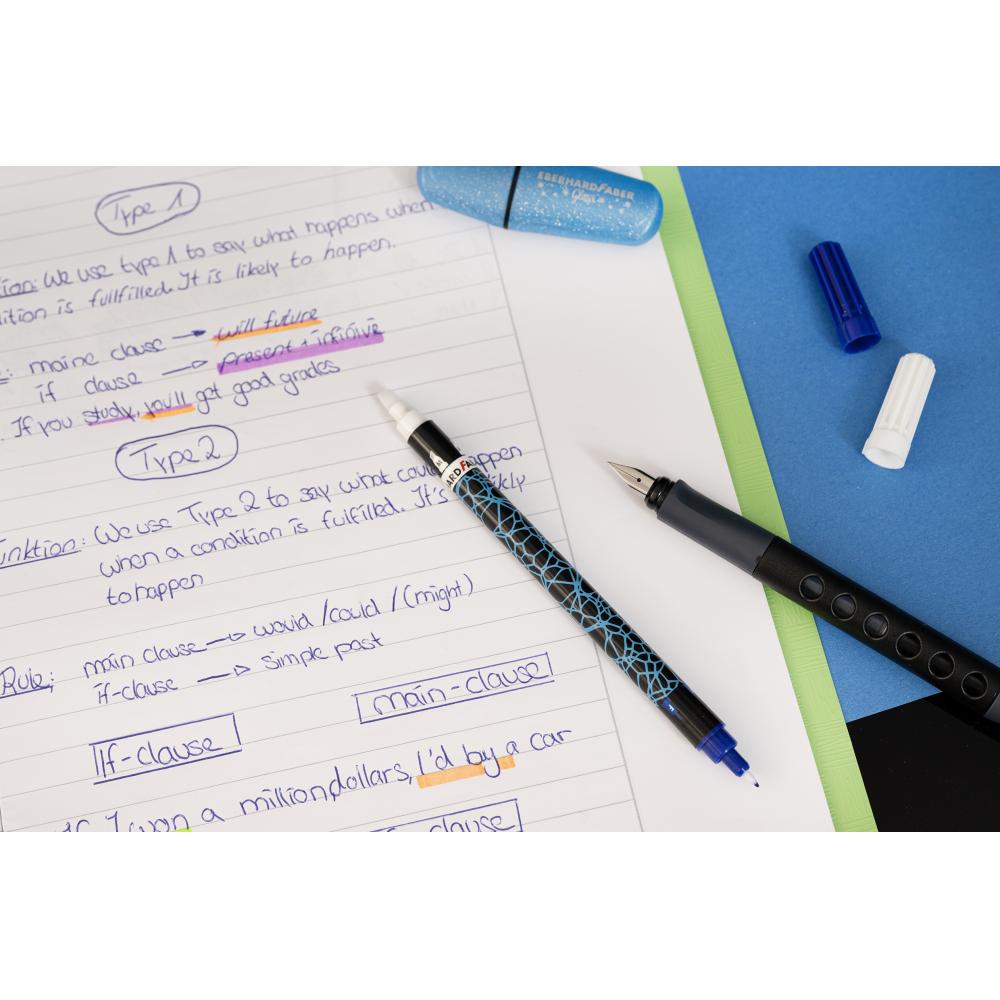 EBERHARD FABER
Glitzer
Type 1
tion: We use type 1 to say what happens when
dition is fullfilled. It is likely to happen.
e: maine clause → will future
if clause → present + infinive
. If you study, you'll get good grades
Type 2
unktion: We use Type 2 to say what could happen
when a condition is fulfilled. It's
to happen
Rule: main clause → would / could / (might)
if-clause → simple past
If-clause main-clause
If I won a million dollars, I'd by a car
clause
ARD FA